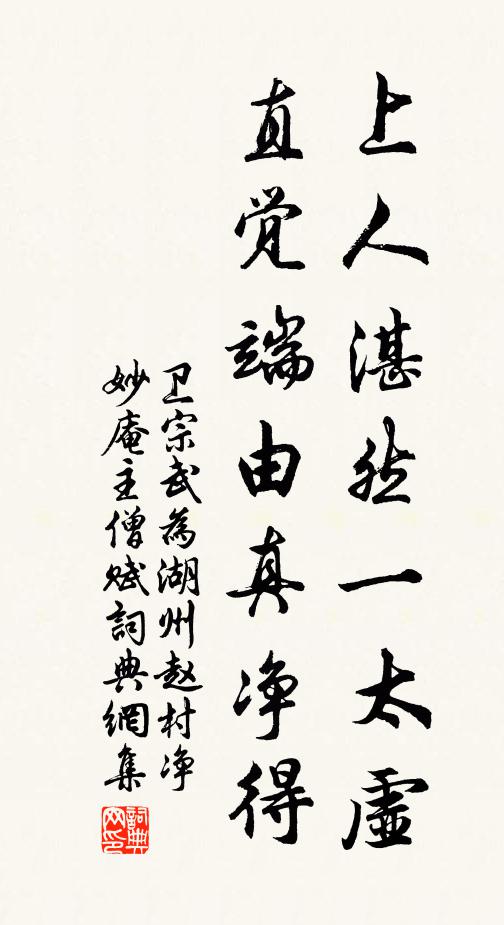 上人湛然一太虛
直觉端由真净得
卫宗武為湖州赵村净
妙庵主僧赋詞典網集
詞典网印